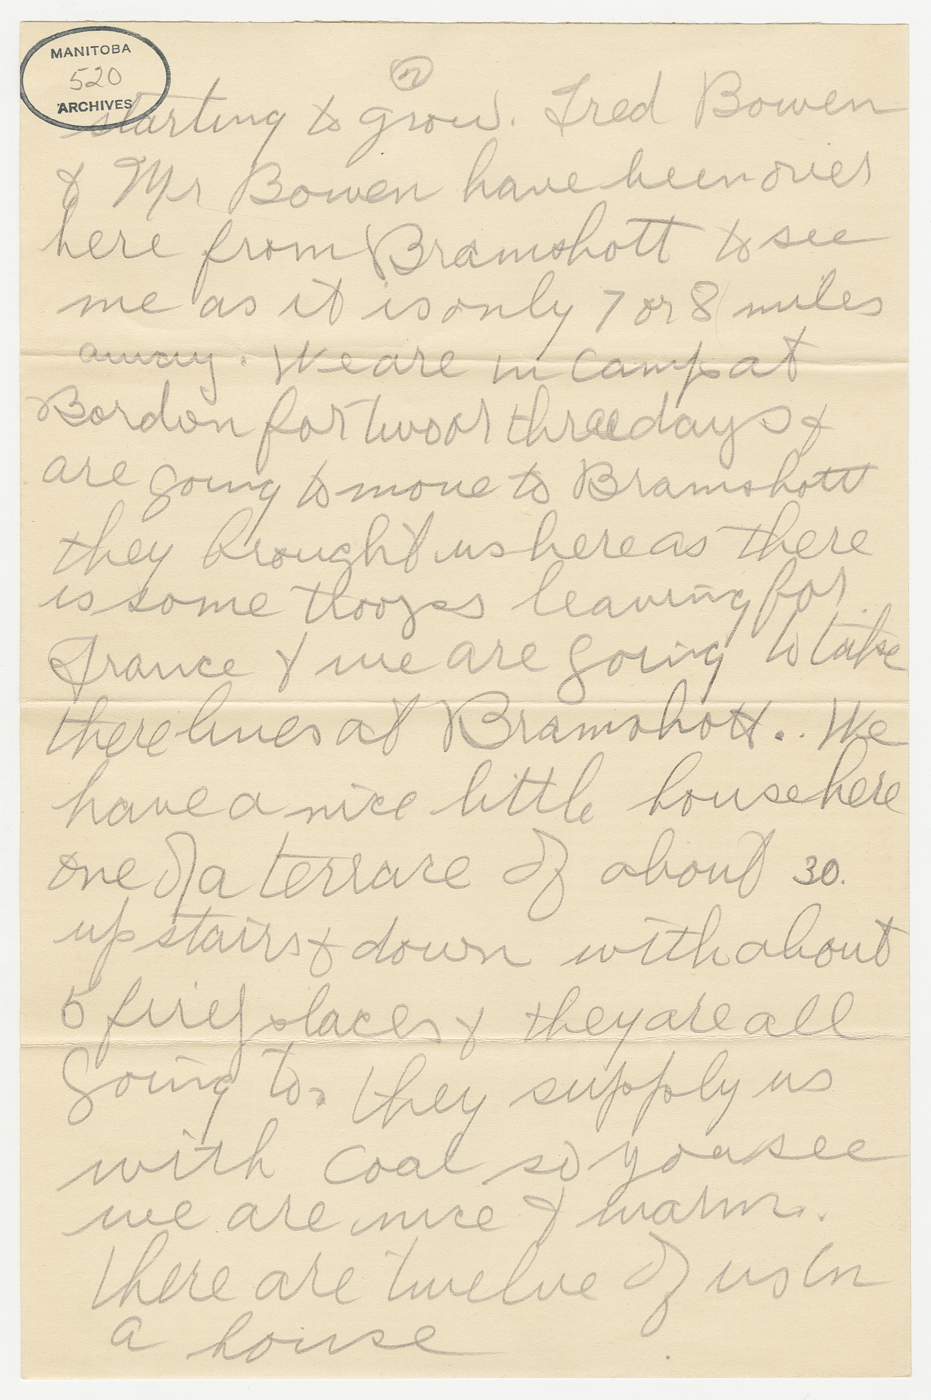 MANITOBA
520
ARCHIVES
starting to grow. Fred Bowen
& Mr Bowen have been over
here from Bramshott to see
me as it is only 7 or 8 miles
away. We are in camp at
Bordon for two or three days &
are going to move to Bramshott
they brought us here as there
is some troops leaving for
France & we are going to take
there lines at Bramshott.. We
have a nice little house here
one of a terrace of about 30.
up stairs & down with about
5 fire places & they are all
going to. they supply us
with coal so you see
we are nice & warm.
there are twelve of us in
a house